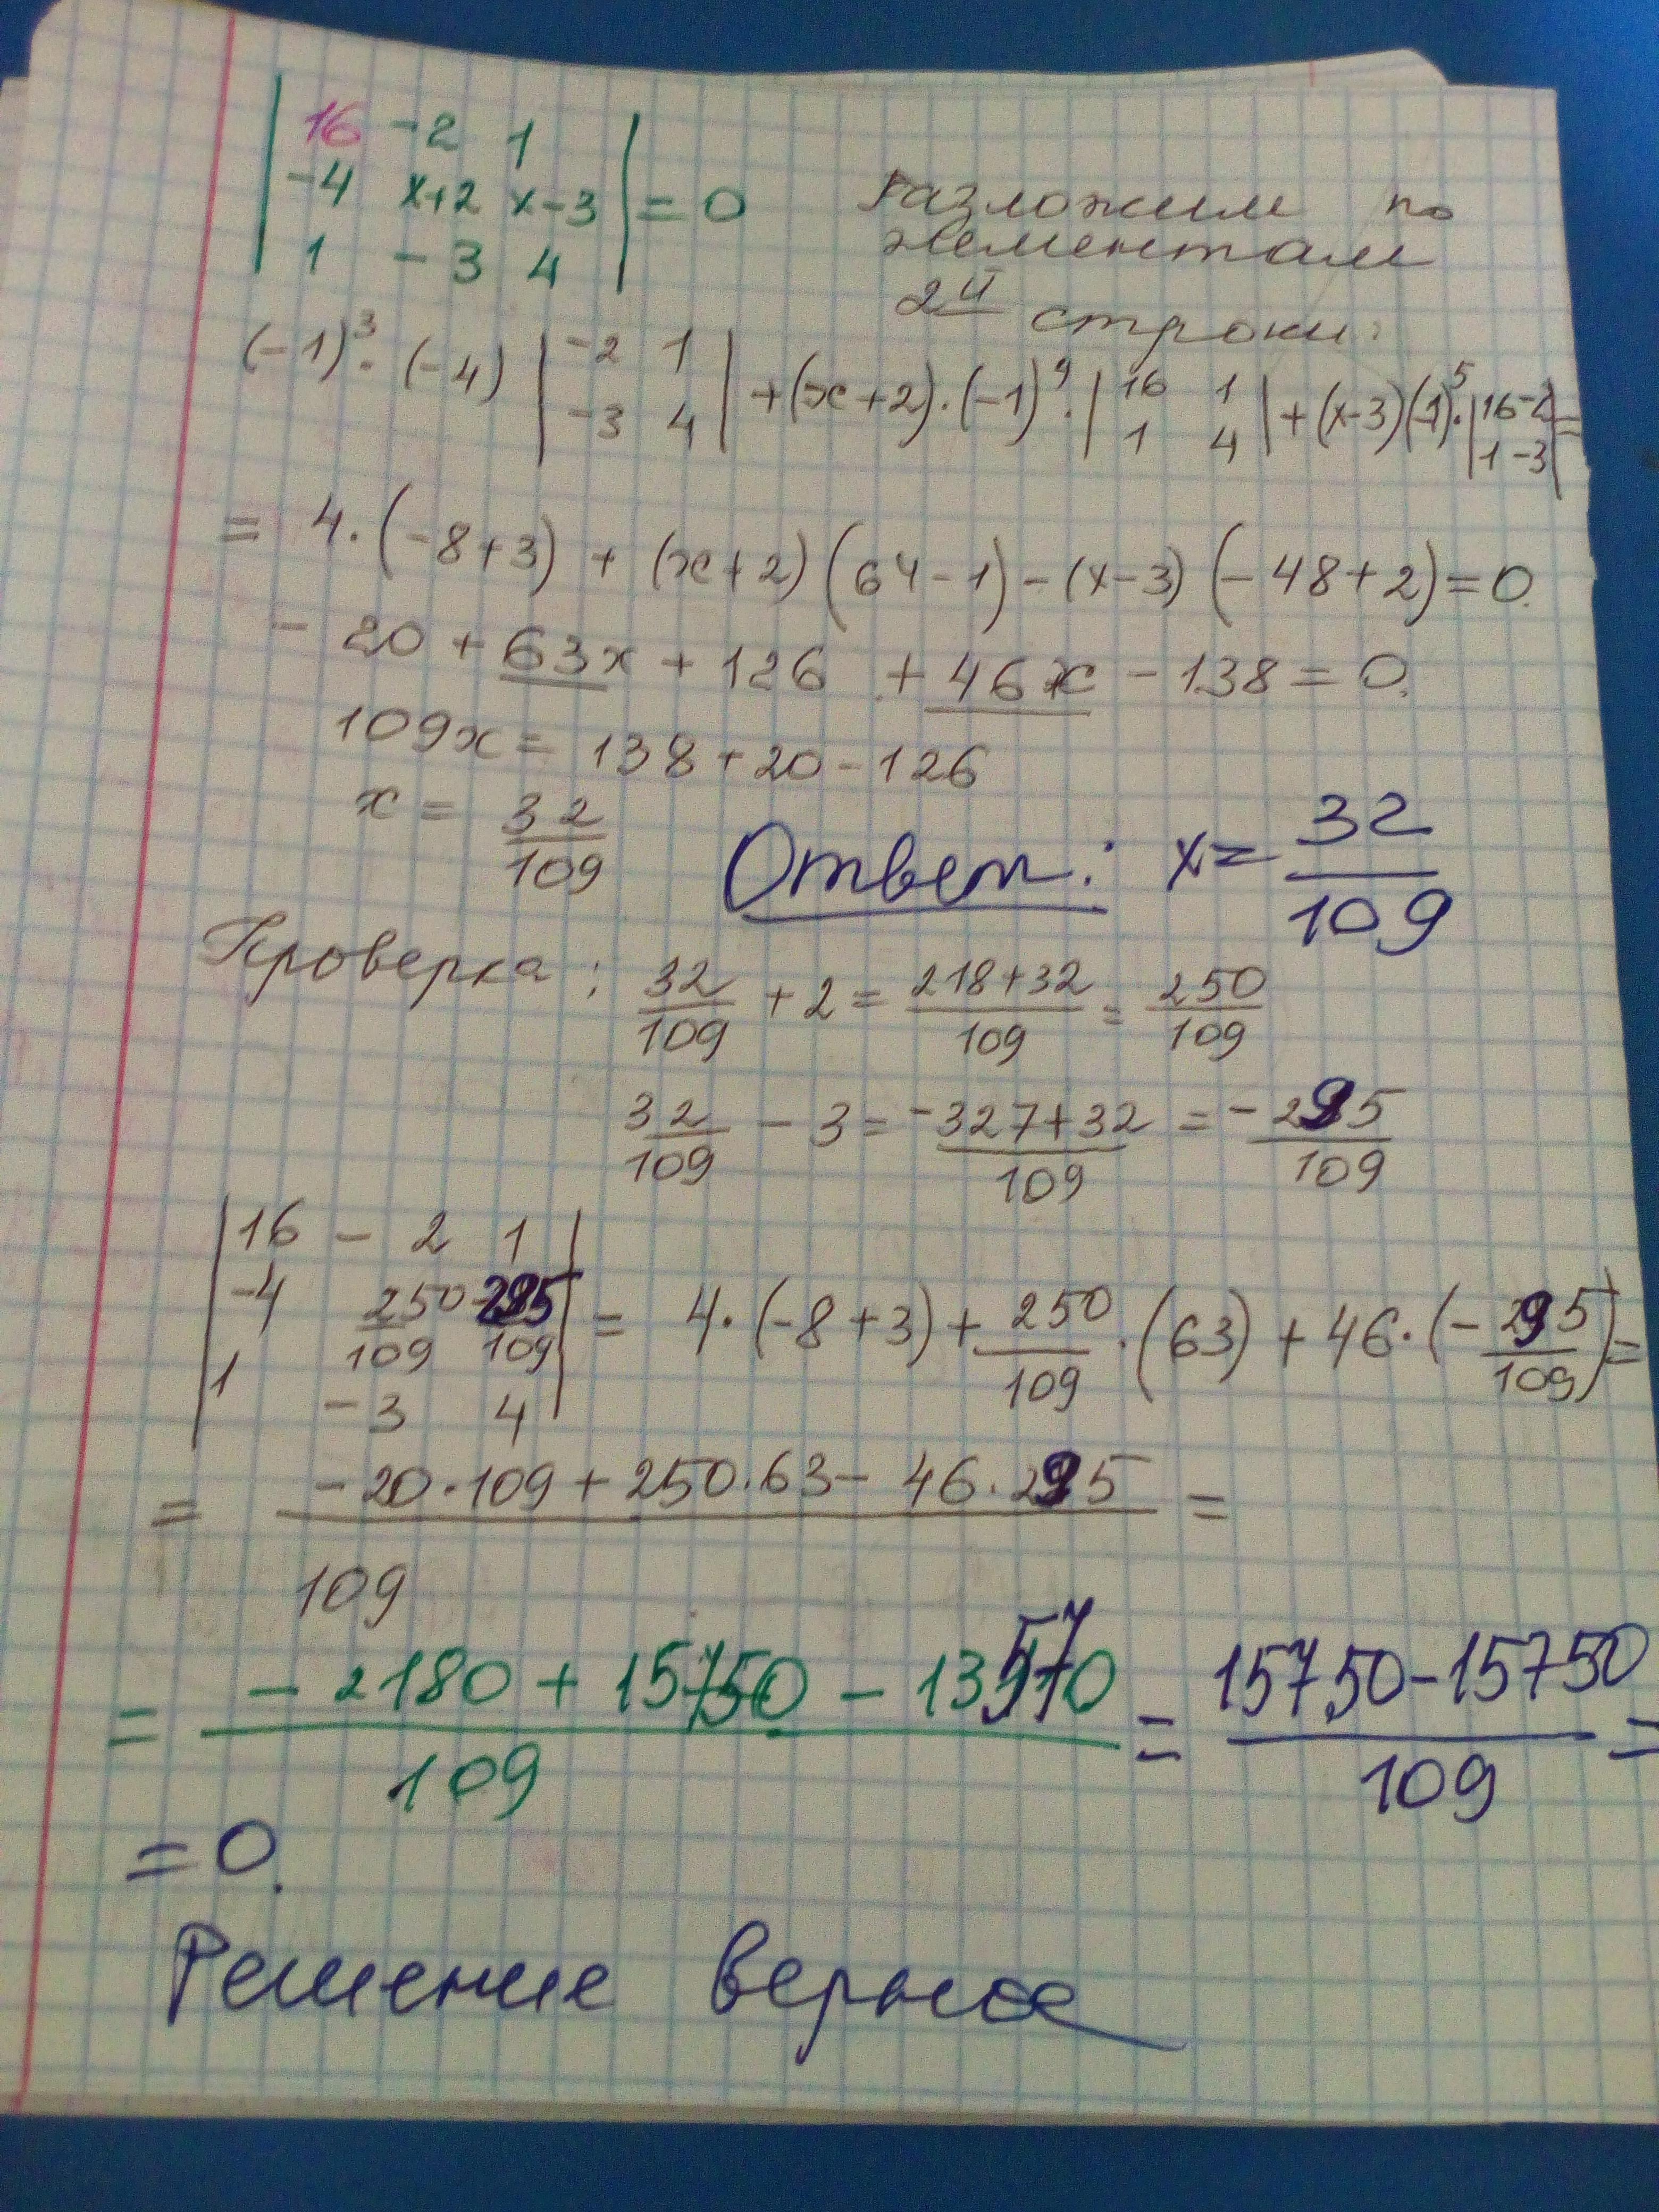 | 16 -2 1 |
| -4 x+2 x-3 | = 0
| 1 -3 4 |
Разложим по
элементам
2й строки:
(-1)³·(-4) | -2 1 ; -3 4 | + (x+2)·(-1)⁴·| 16 1 ; 1 4 | + (x-3)(-1)⁵·| 16 -2 ; 1 -3 | =
= 4·(-8+3) + (x+2)(64-1) - (x-3)(-48+2) = 0.
- 20 + 63x + 126 + 46x - 138 = 0.
109x = 138 + 20 - 126
x = 32/109
Ответ: x = 32/109
Проверка: 32/109 + 2 = (218+32)/109 = 250/109
32/109 - 3 = (-327+32)/109 = -295/109
| 16 -2 1 |
| -4 250/109 -295/109 | = 4·(-8+3) + 250/109·(63) + 46·(-295/109) =
| 1 -3 4 |
= (-20·109 + 250·63 - 46·295)/109 =
= (-2180 + 15750 - 13570)/109 = (15750 - 15750)/109 =
= 0.
Решение верное